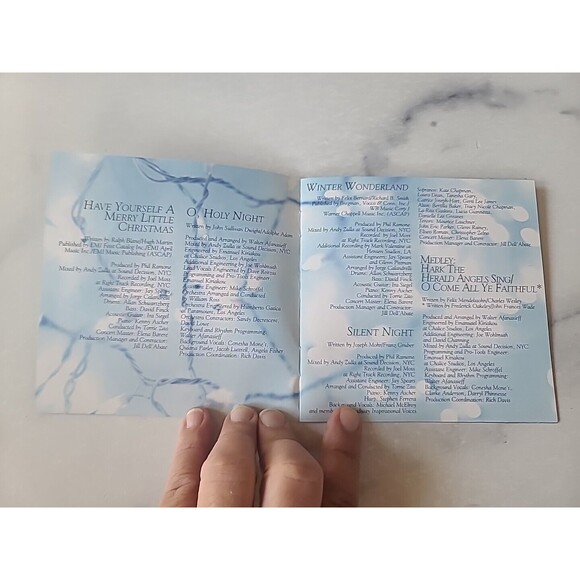 HAVE YOURSELF A
MERRY LITTLE
CHRISTMAS
Written by Ralph Blane/Hugh Martin
Published by EMI Feist Catalog Inc./EMI April
Music Inc. (EMI Music Publishing) (ASCAP)
Produced by Phil Ramone
Mixed by Andy Zulla at Sound Decision, NYC
Recorded by Joel Moss
at Right Track Recording, NYC
Assistant Engineer: Jay Spears
Arranged by Jorge Calandrelli
Drums: Allan Schwartzberg
Bass: David Finck
Acoustic Guitar: Ira Siegel
Piano: Kenny Ascher
Conducted by Torrie Zito
Concert Master: Elena Barere
Production Manager and Contractor:
Jill Dell'Abate
O' HOLY NIGHT
Written by John Sullivan Dwight/Adolphe Adam
Produced and Arranged by Walter Afanasieff
Mixed by Andy Zulla at Sound Decision, NYC
Engineered by Emanuel Kiriakou
at Chalice Studios, Los Angeles
Additional Engineering by Joe Wohlmuth
Lead Vocals Engineered by Dave Reitzas
Programming and Pro-Tools Engineer:
Emanuel Kiriakou
Assistant Engineer: Mike Schreffel
Orchestra Arranged and Conducted
by William Ross
Orchestra Engineered by Humberto Gatica
at Paramount, Los Angeles
Orchestra Contractors: Sandy Decrescent,
David Lowe
Keyboard and Rhythm Programming:
Walter Afanasieff
Background Vocals: Conesha Mone't,
Quiana Parler, Jacob Luttrell, Angela Fisher
Production Coordination: Rich Davis
WINTER WONDERLAND
Written by Felix Bernard/Richard B. Smith
Will Music Corp./
Warner Chappell Music Inc. (ASCAP)
Produced by Phil Ramone
Mixed by Andy Zulla at Sound Decision, NYC
Recorded by Joel Moss
at Right Track Recording, NYC
Additional Recording by Mark Valentine at
Henson Studios, LA
Assistant Engineers: Jay Spears
and Glenn Pittman
Arranged by Jorge Calandrelli
Drums: Allan Schwartzberg
Bass: David Finck
Acoustic Guitar: Ira Siegel
Piano: Kenny Ascher
Conducted by Torrie Zito
Concert Master: Elena Barere
Production Manager and Contractor:
Jill Dell'Abate
SILENT NIGHT
Written by Joseph Mohr/Franz Gruber
Produced by Phil Ramone
Mixed by Andy Zulla at Sound Decision, NYC
Recorded by Joel Moss
at Right Track Recording, NYC
Assistant Engineer: Jay Spears
Arranged and Conducted by Torrie Zito
Piano: Kenny Ascher
Harp: Stephen Ferrera
Background Vocals: Michael McElroy
and members of Broadway Inspirational Voices
Sopranos: Kaie Chapman,
Lenora Jospeh-Hart, Gorra Lee James
Altos: Borelba Baker, Tracy Nicole Chapman,
Production Manager and Contractor: Jill Dell'Abate
MEDLEY:
HARK THE
HERALD ANGELS SING/
O COME ALL YE FAITHFUL*
Written by Felix Mendelssohn/Charles Wesley
* Written by Frederick Oakeley/John Francis Wade
Produced and Arranged by Walter Afanasieff
Engineered by Emanuel Kiriakou
at Chalice Studios, Los Angeles
Additional Engineering by Joe Wohlmuth
and David Channing
Mixed by Andy Zulla at Sound Decision, NYC
Programming and Pro-Tools Engineer:
Emanuel Kiriakou
at Chalice Studios, Los Angeles
Assistant Engineer: Mike Schreffel
Keyboard and Rhythm Programming:
Walter Afanasieff
Background Vocals: Conesha Mone't,
Clarke Anderson, Darryl Phinnesse
Production Coordination: Rich Davis